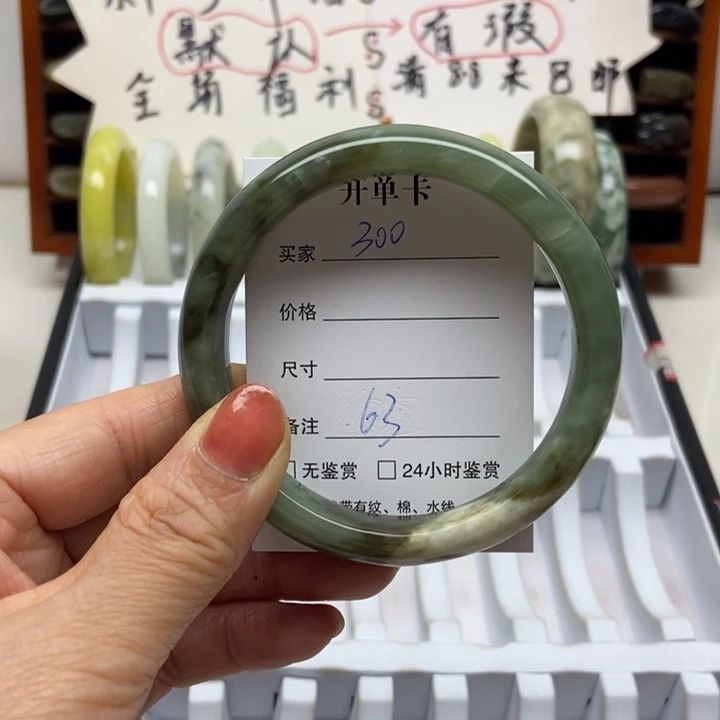 默认 → 有瑕
全场福利
开单卡
买家 300
价格
尺寸
备注 63
□无鉴赏 □24小时鉴赏
带有纹、棉、水线